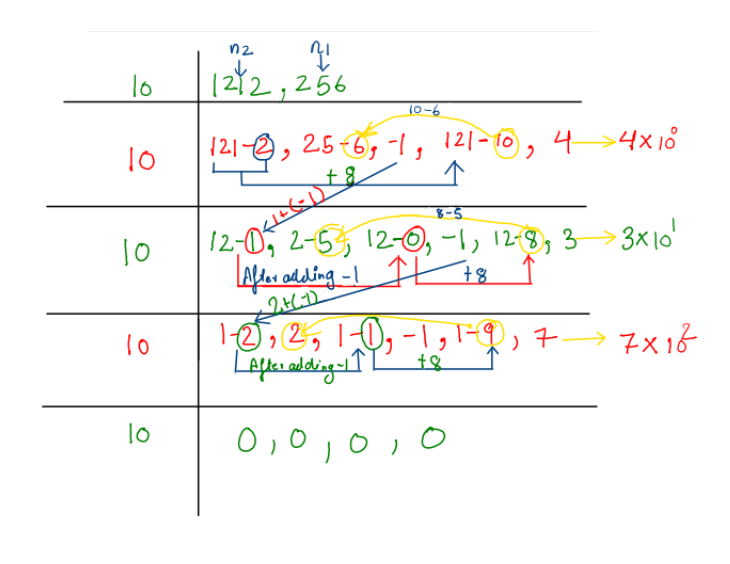 n2 n1
10 1212, 256
10-6
10 121-2, 25-6, -1, 121-10, 4 → 4×10⁰
+8
1+(-1) 8-5
10 12-1, 2-5, 12-0, -1, 12-8, 3 → 3×10¹
After adding -1 +8
2+(-1)
10 1-2, 2, 1-1, -1, 1-9, 7 → 7×10²
After adding -1 +8
10 0, 0, 0, 0